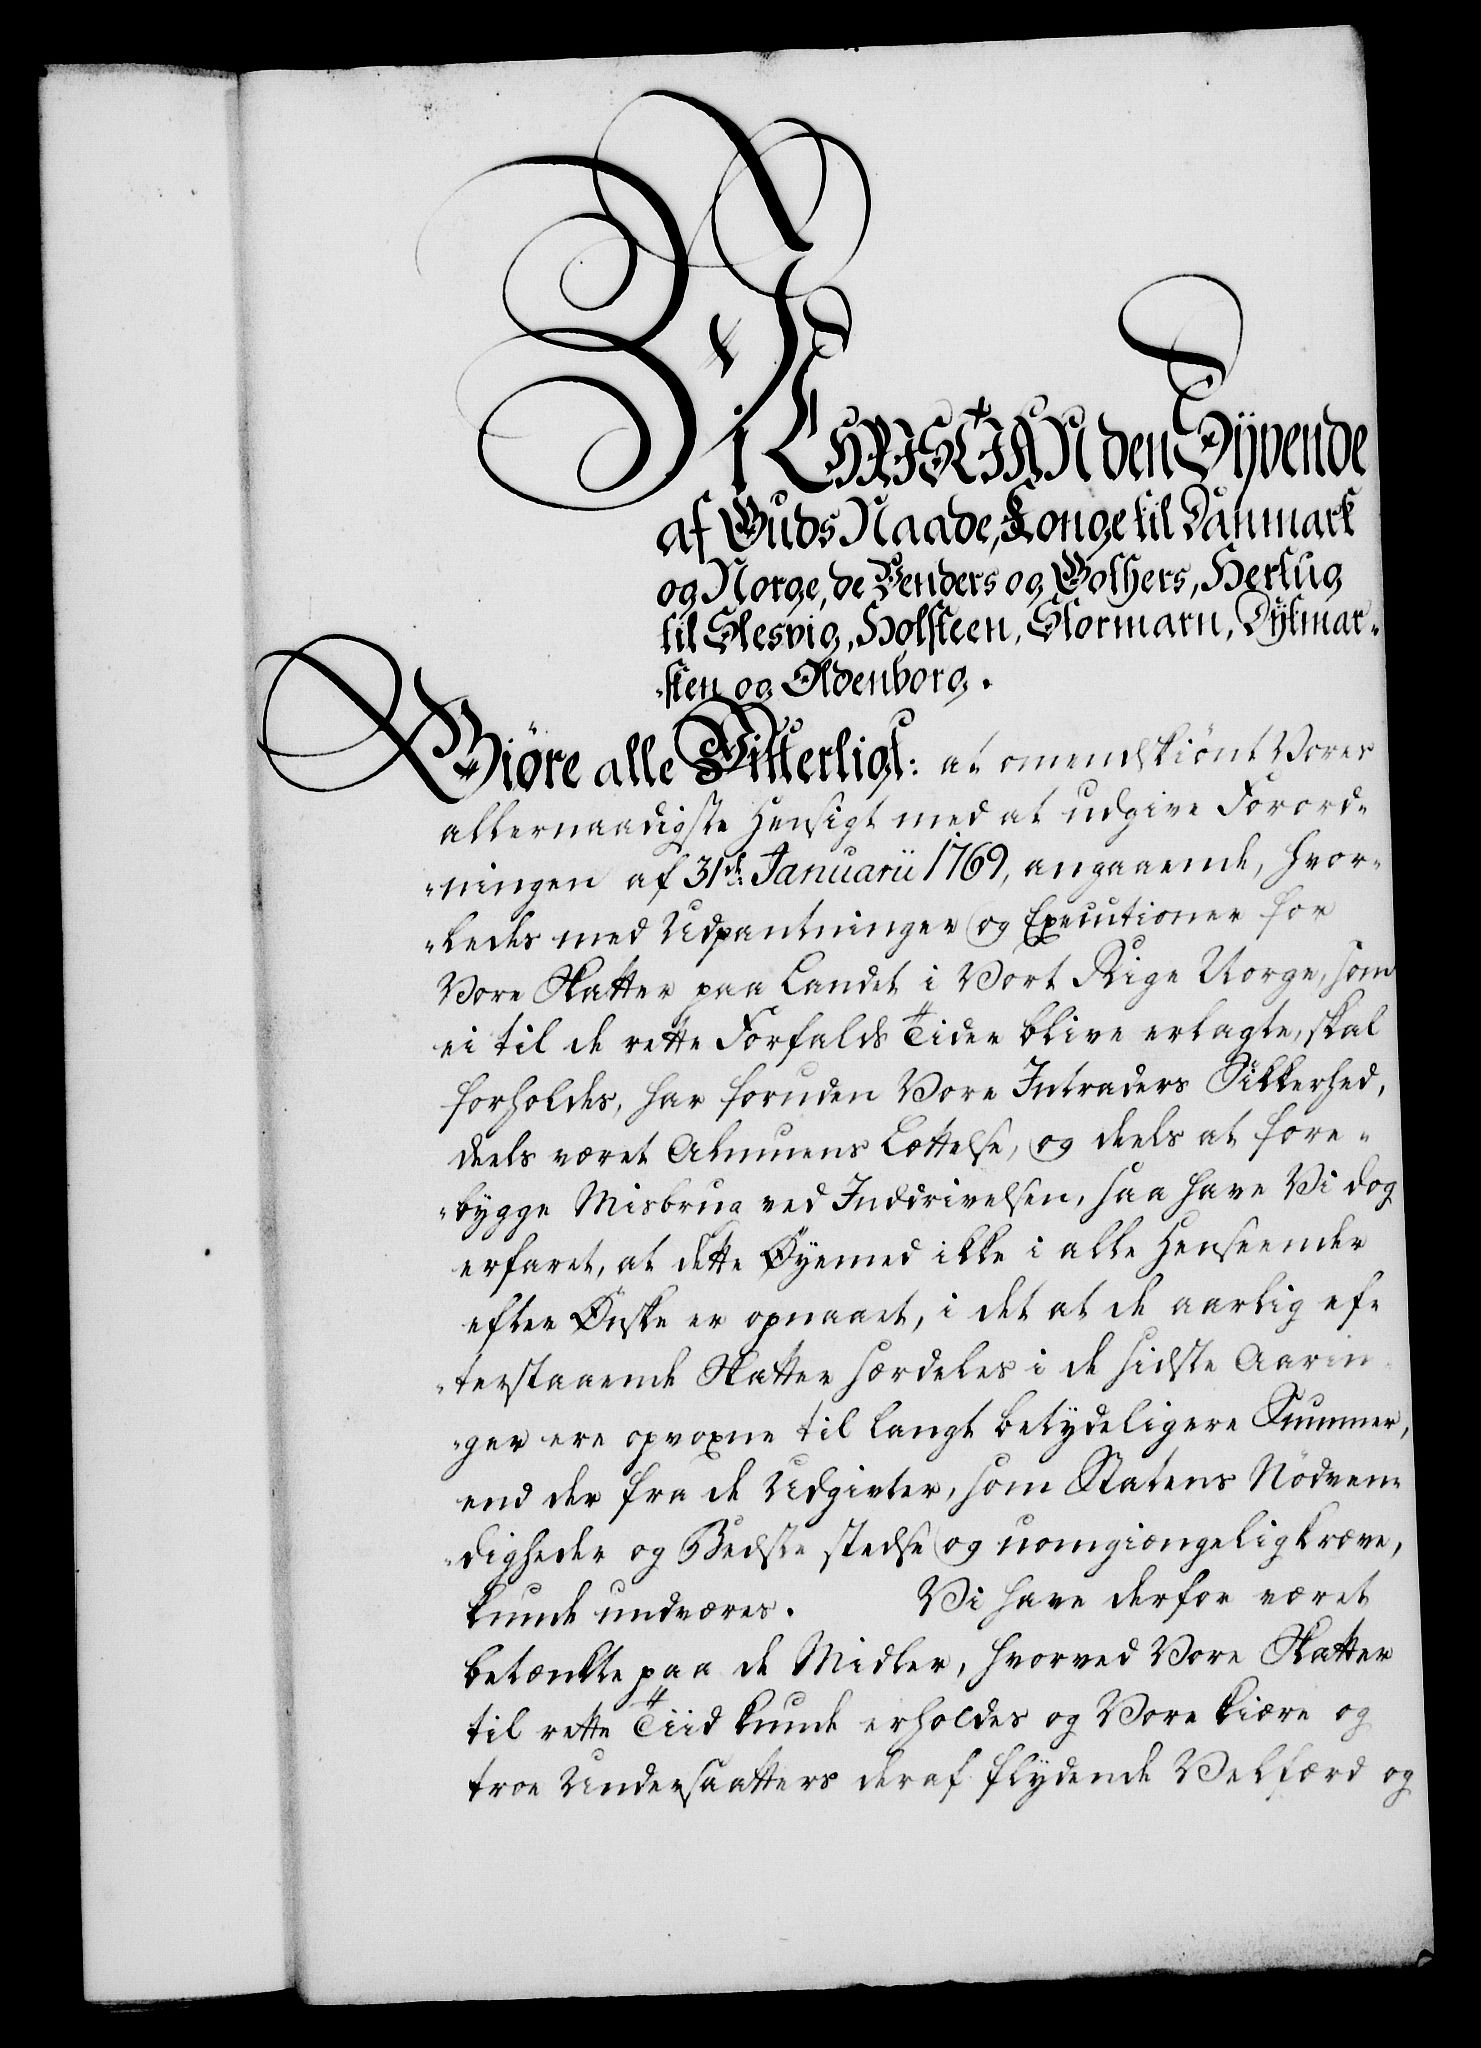 Vi CHRISTIAN den Syvende
af Guds Naade, Konge til Danmark
og Norge, de Venders og Gothers, Hertug
til Slesvig, Holsteen, Stormarn, Dytmar-
-sken og Oldenborg.
Giöre alle Vitterligt: at omendskiönt Vores
allernaadigste Hensigt med at udgive Forord-
-ningen af 31de Januarii 1769, angaaende, hvor-
-ledes med Udpantninger og Executioner for
Vore Skatter paa Landet i Vort Rige Norge, som
ei til de rette Forfalds Tider blive erlagte, skal
forholdes, har foruden Vore Intraders Sikkerhed,
deels været Almuens Lettelse, og deels at fore-
-bygge Misbrug ved Inddrivelsen, saa have Vi dog
erfaret, at dette Øyemed ikke i alle Henseender
efter Ønske er opnaaet, i det at de aarlig ef-
-terstaaende Skatter særdeles i de sidste Aarin-
-ger ere opvoxne til langt betydeligere Summer,
end der fra de Udgivter, som Statens Nödven-
-digheder og Bedste stedse og uomgiængelig kræve,
kunde undværes. Vi have derfor været
betænkte paa de Midler, hvorved Vore Skatter
til rette Tiid kunde erholdes og Vore kiære og
troe Undersaatters deraf flydende Velfærd og